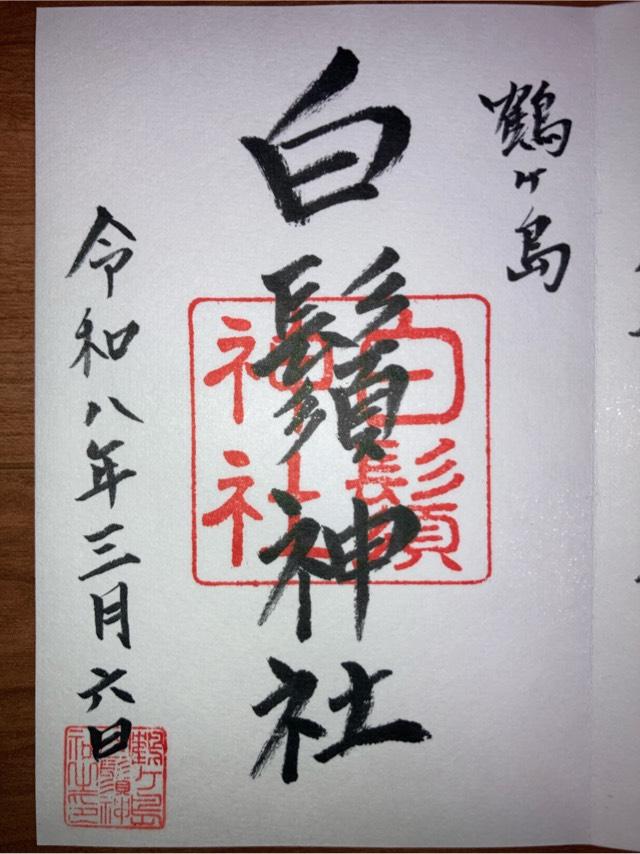 鶴ヶ島
白鬚神社
白鬚
神社
令和八年三月六日
鶴ヶ島
白鬚神
社之印